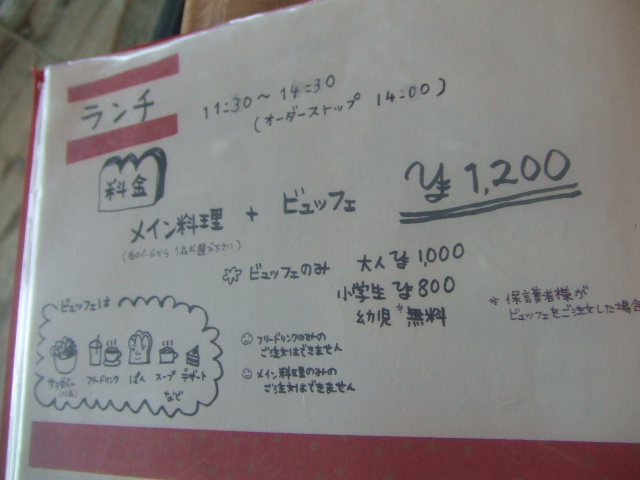 ランチ
11:30～14:30
(オーダーストップ 14:00)
料金
メイン料理 + ビュッフェ ¥1,200
☆ ビュッフェのみ 大人 ¥1,000
小学生 ¥800
幼児* 無料
* 保護者様が
ビュッフェをご注文した場合
ビュッフェは
サラダバー フリードリンク ぱん スープ デザート
など
フリードリンクのみの
ご注文はできません
メイン料理のみの
ご注文はできません